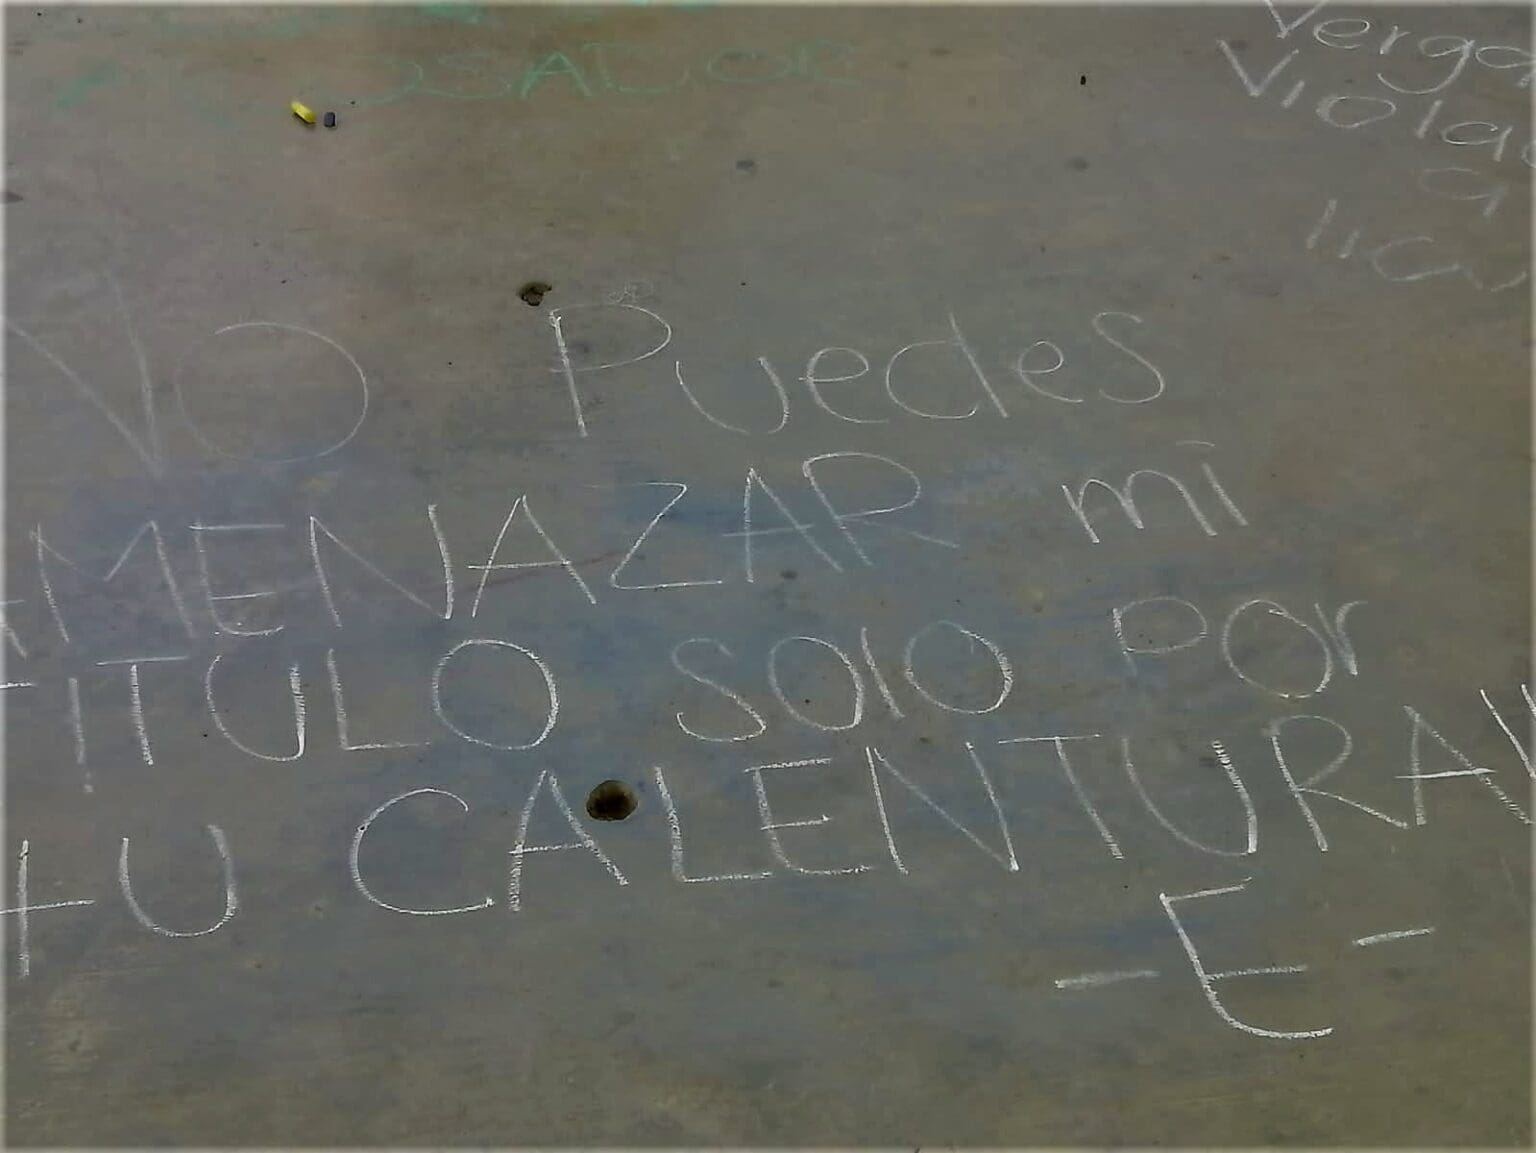 OSADOR
Verga
Viola
a
NO Puedes
AMENAZAR mi
TITULO SOlO POr
tU CALENTURA!!
- E -